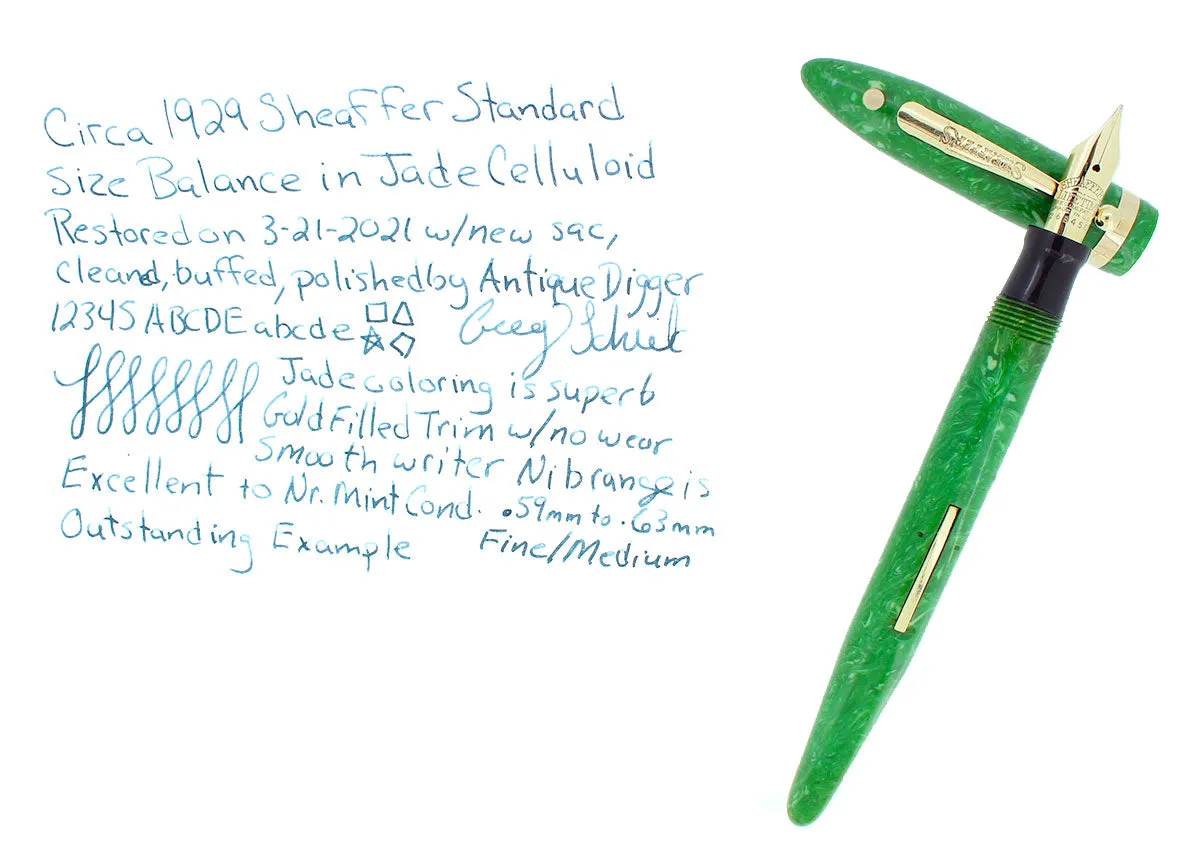 Circa 1929 Sheaffer Standard
Size Balance in Jade Celluloid
Restored on 3-21-2021 w/new sac,
cleand, buffed, polished by Antique Digger
12345 ABCDE abcde
Jade coloring is superb
Gold Filled Trim w/no wear
Smooth writer Nib range is
Excellent to Nr. Mint Cond. .59mm to .63mm
Outstanding Example Fine/Medium
SHEAFFER'S
SHEAFFER'S
LIFETIME